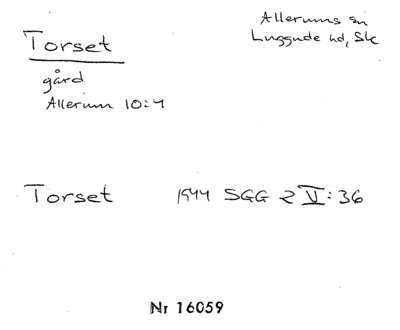 Torset
Allerums sn
Luggude hd, Sk
gård
Allerum 10:4
Torset 1944 SGG 2 V:36
Nr 16059